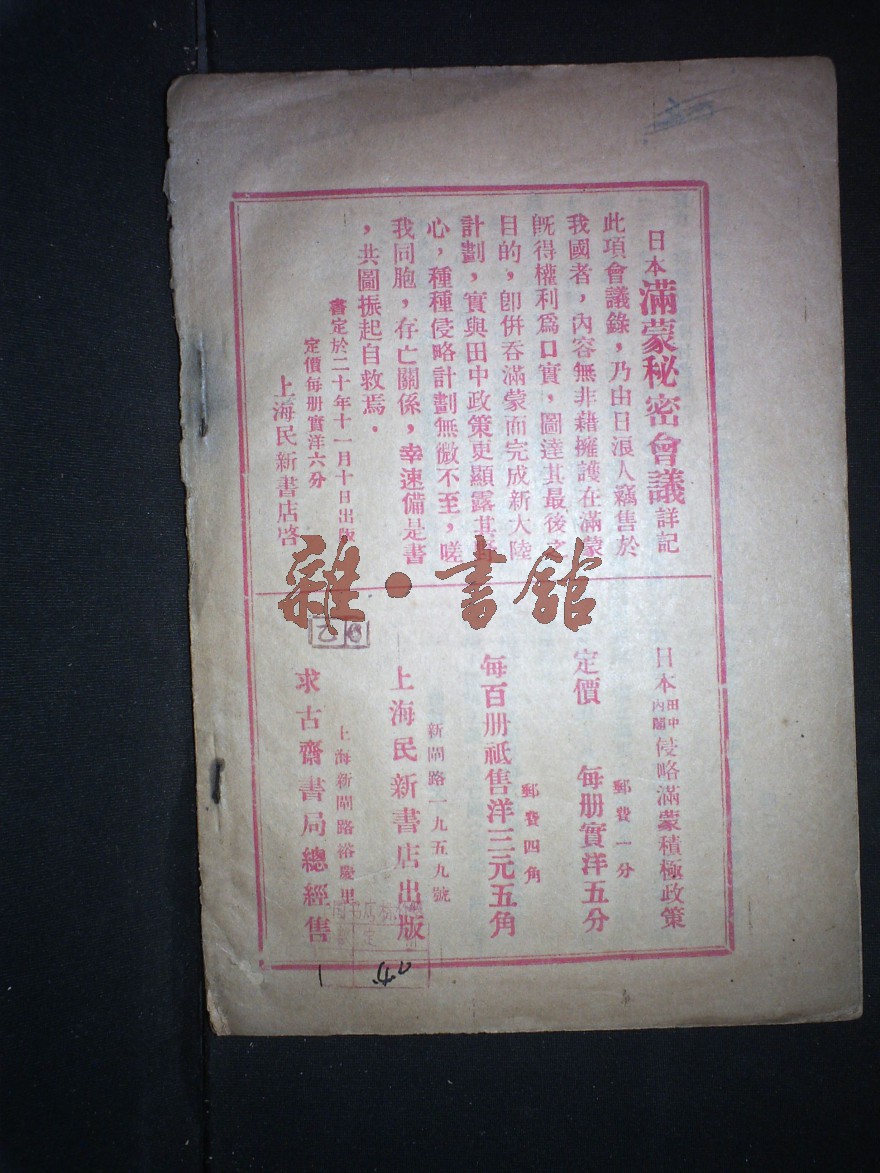 日本滿蒙秘密會議詳記
此項會議錄，乃由日浪人竊售於
我國者，內容無非藉擁護在滿蒙
既得權利爲口實，圖達其最後之
目的，卽併吞滿蒙而完成新大陸
計劃，實與田中政策更顯露其
心，種種侵略計劃無微不至，嗟
我同胞，存亡關係，幸速備是書
，共圖振起自救焉．
書定於二十年十一月十日出版
定價每册實洋六分
上海民新書店啓
日本田中內閣侵略滿蒙積極政策
郵費一分
定價 每册實洋五分
郵費四角
每百册祇售洋三元五角
新閘路一九五九號
上海民新書店出版
上海新閘路裕慶里
求古齋書局總經售
乙6
雜·書館
定